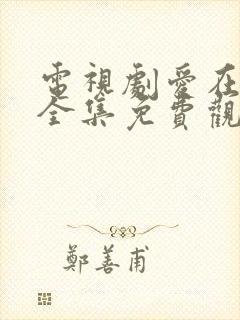 電視劇愛在
全集免費觀
鄭善甫